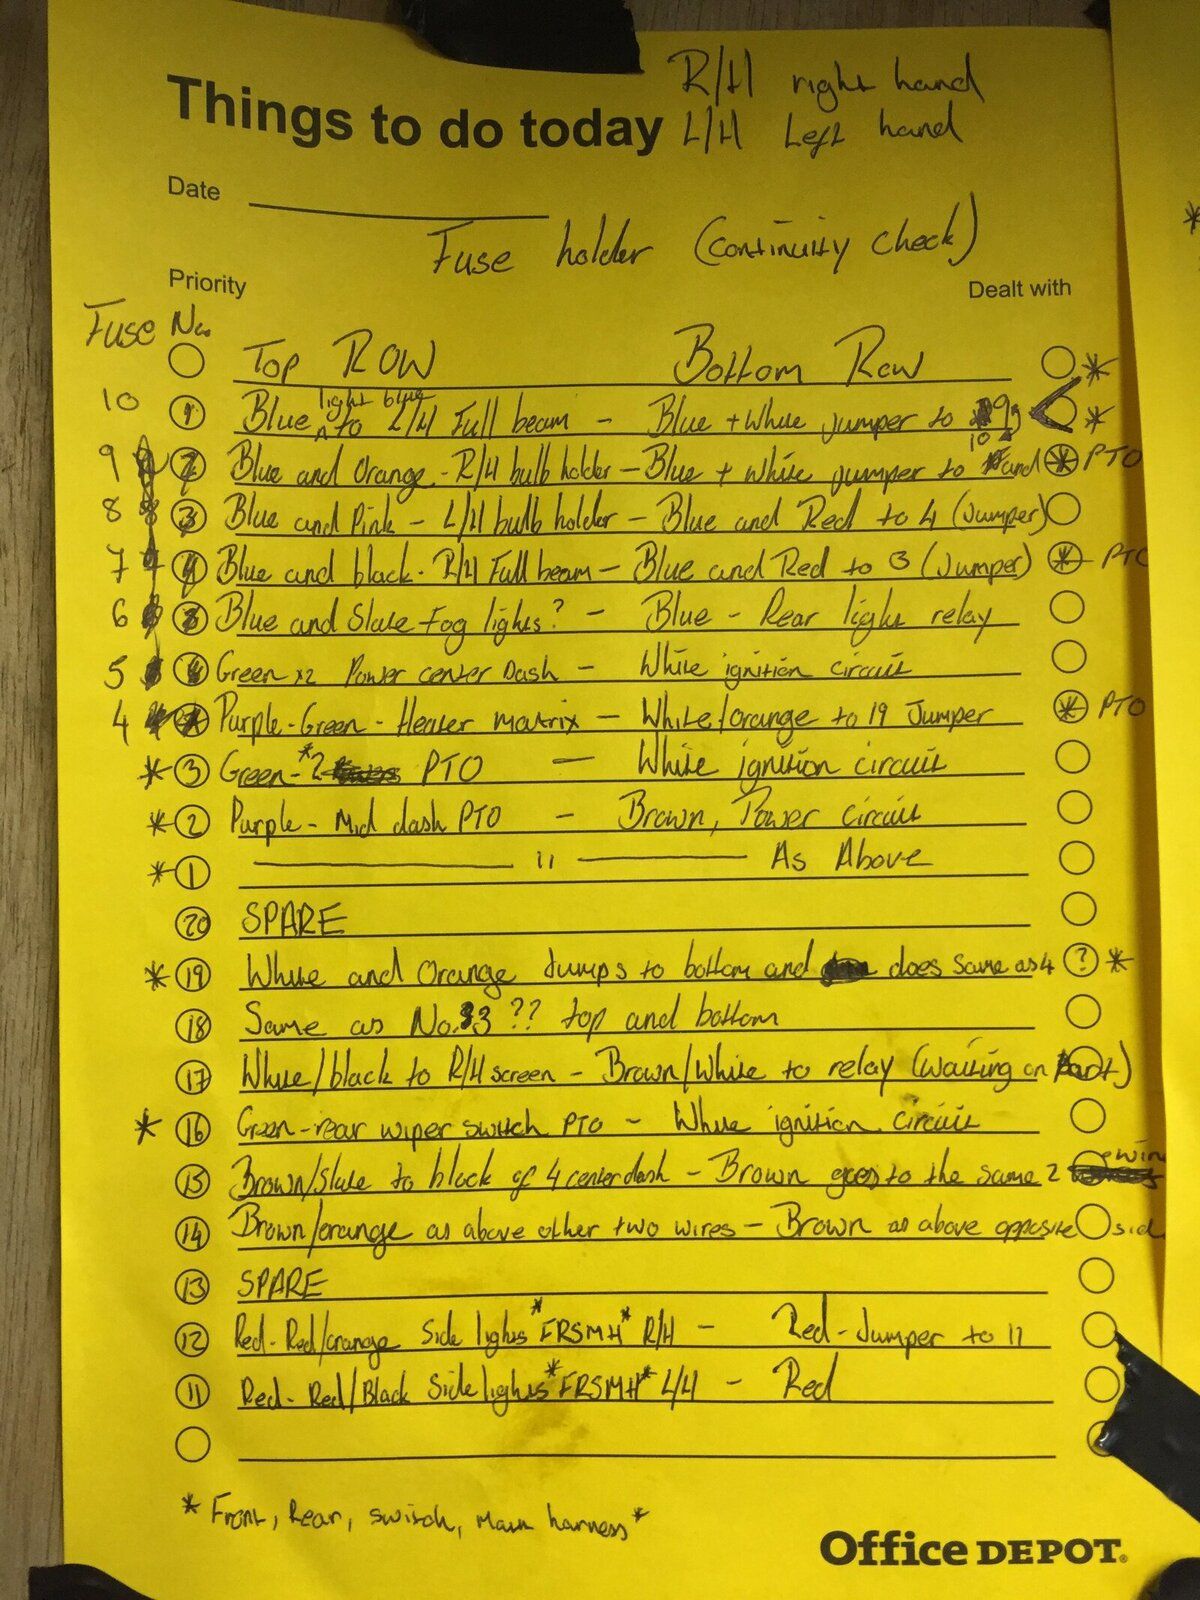 R/H right hand
Things to do today L/H Left hand
Date
Fuse holder (Continuity check)
Priority Dealt with
Fuse No.
Top ROW Bottom Row *
10 Blue light blue to L/H Full beam - Blue + White jumper to 9 *
9 Blue and Orange - R/H bulb holder - Blue + White jumper to 10 and * PTO
8 Blue and Pink - L/H bulb holder - Blue and Red to 4 (Jumper)
7 Blue and black - R/H Full beam - Blue and Red to 3 (Jumper) * PTO
6 Blue and Slate Fog lights? - Blue - Rear light relay
5 Green x2 Power center Dash - White ignition circuit
4 Purple-Green - Heater matrix - White/orange to 19 Jumper * PTO
* 3 Green - *2 PTO - White ignition circuit
* 2 Purple - Mid dash PTO - Brown, Power circuit
* 1 —— 11 —— As Above
20 SPARE
* 19 White and Orange Jumps to bottom and does same as 4 ? *
18 Same as No. 3 ?? top and bottom
17 White/black to R/H screen - Brown/White to relay (waiting on Part)
* 16 Green-rear wiper switch PTO - White ignition circuit
15 Brown/Slate to block of 4 center dash - Brown goes to the same 2
14 Brown/orange as above other two wires - Brown as above opposite sid
13 SPARE
12 Red-Red/orange Side lights *FRSMH* R/H - Red-Jumper to 11
11 Red-Red/Black Sidelights *FRSMH* L/H - Red
* Front, Rear, switch, Main harness *
Office DEPOT.